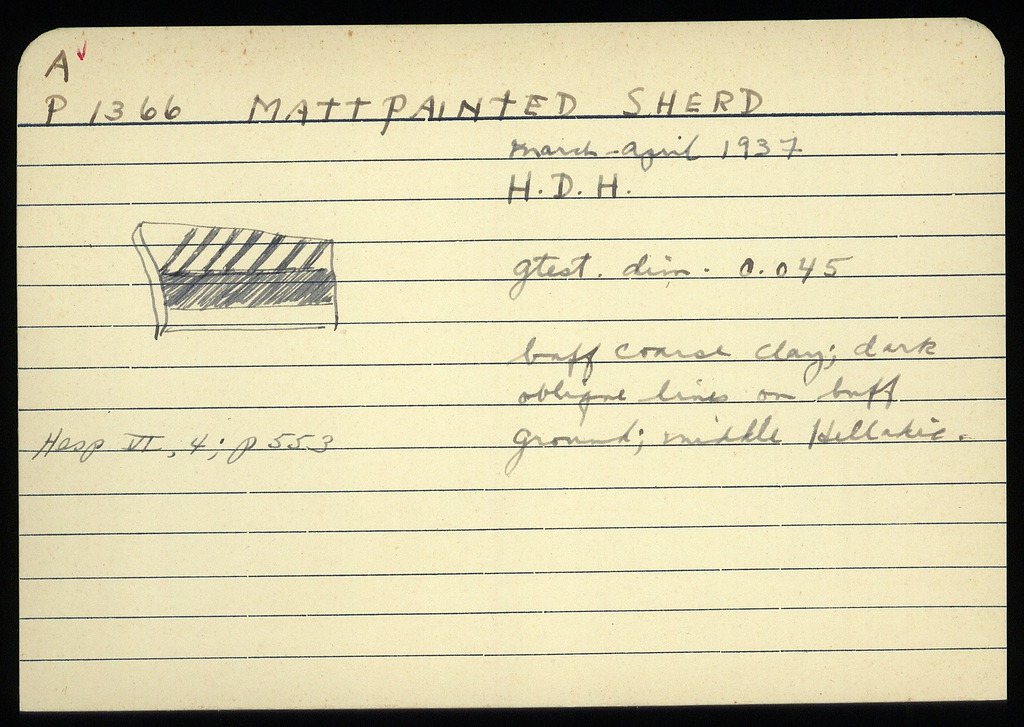 A
P 1366 MATT PAINTED SHERD
March-April 1937
H. D. H.
gtest. dim. 0.045
buff coarse clay; dark
oblique lines on buff
ground; middle Helladic.
Hesp VI, 4; p 553